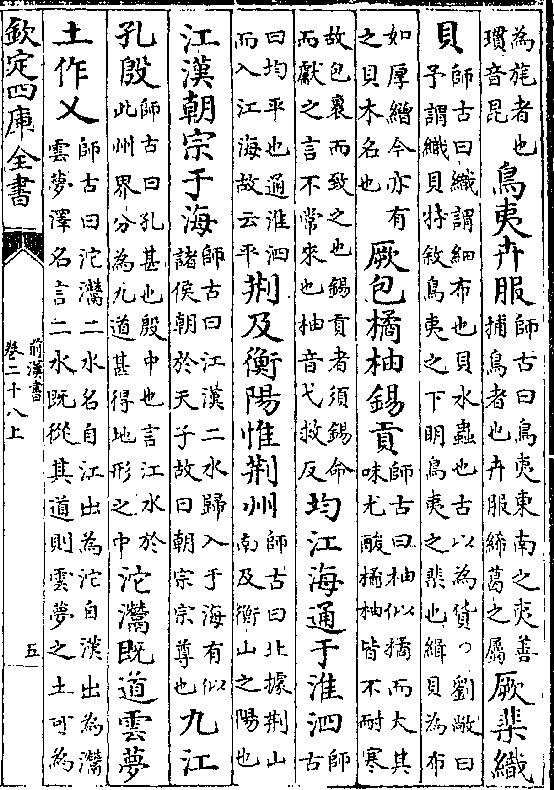 為旄者也
瑻音昆
鳥夷卉服
師古曰鳥夷東南之夷善
捕鳥者也卉服絺葛之屬
厥棐織
貝
師古曰織謂細布也貝水蟲也古以為貨劉敞曰
予謂織貝特敘鳥夷之下明鳥夷之棐也緝貝為布
如厚繒今亦有
之貝木名也
厥包橘柚錫貢
師古曰柚似橘而大其
味尤酸橘柚皆不耐寒
故包裹而致之也錫貢者須錫命
而獻之言不常來也柚音弋救反
均江海通于淮泗
師
古
曰均平也通淮泗
而入江海故云平
荆及衡陽惟荆州
師古曰北據荆山
南及衡山之陽也
江漢朝宗于海
師古曰江漢二水歸入于海有似
諸侯朝於天子故曰朝宗宗尊也
九江
孔殷
師古曰孔甚也殷中也言江水於
此州界分為九道甚得地形之中
沱灊既道雲夢
土作乂
師古曰沱灊二水名自江出為沱自漢出為灊
雲夢澤名言二水既從其道則雲夢之土可為
欽定四庫全書
前漢書
卷二十八上
五